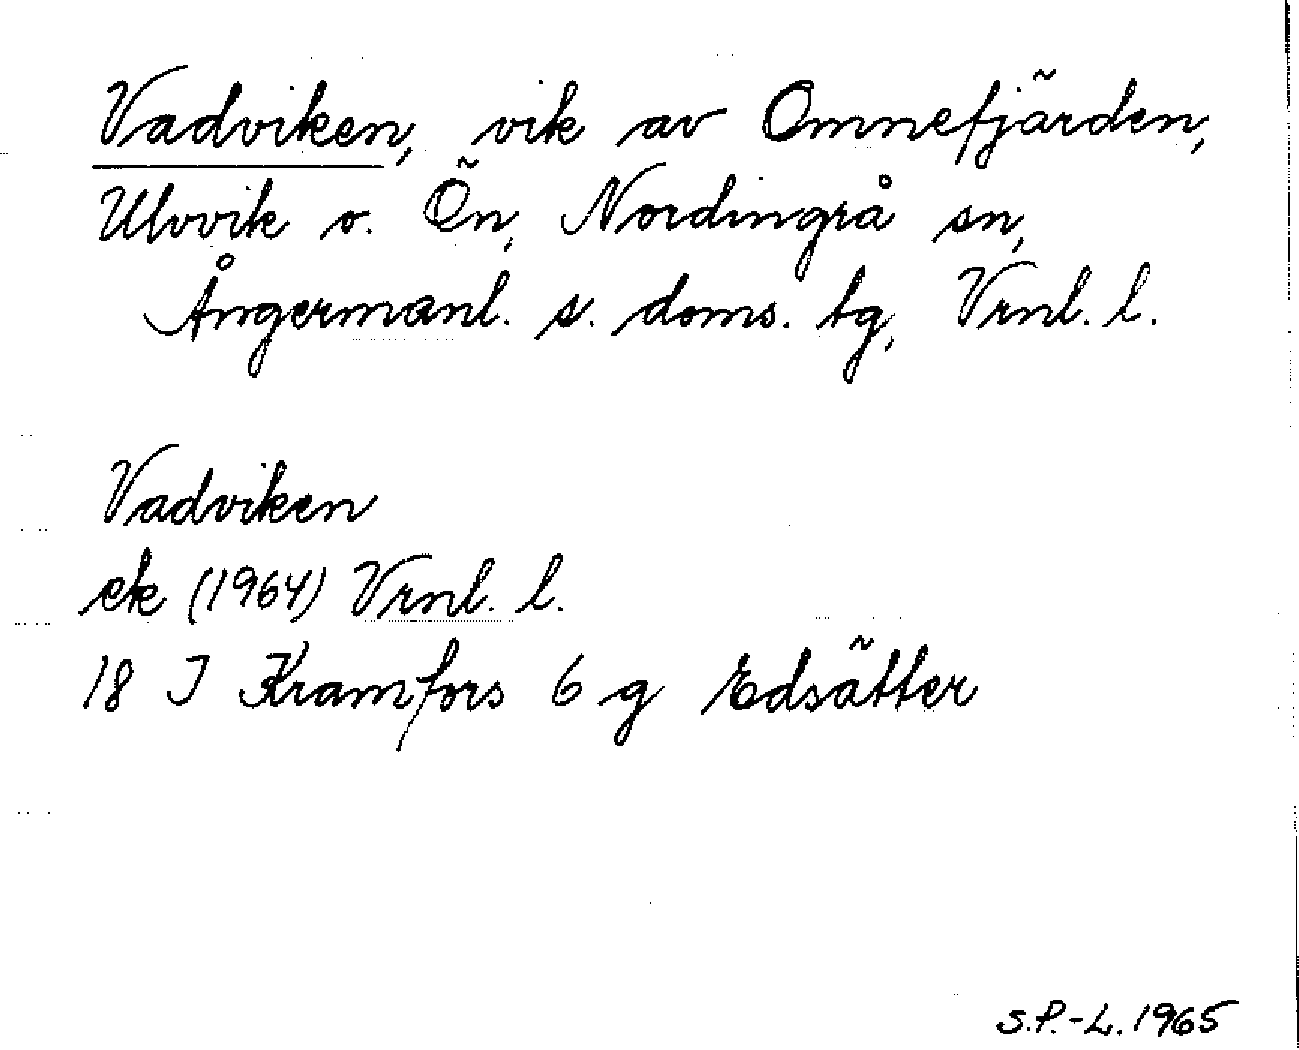 Vadviken, vik av Omnefjärden,
Ulvvik o. Ön, Nordingrå sn,
Ångermanl. s. doms. tg, Vrnl. l.
Vadviken
ek (1964) Vrnl. l.
18 I Kramfors 6 g Edsätter
S.P.-L. 1965